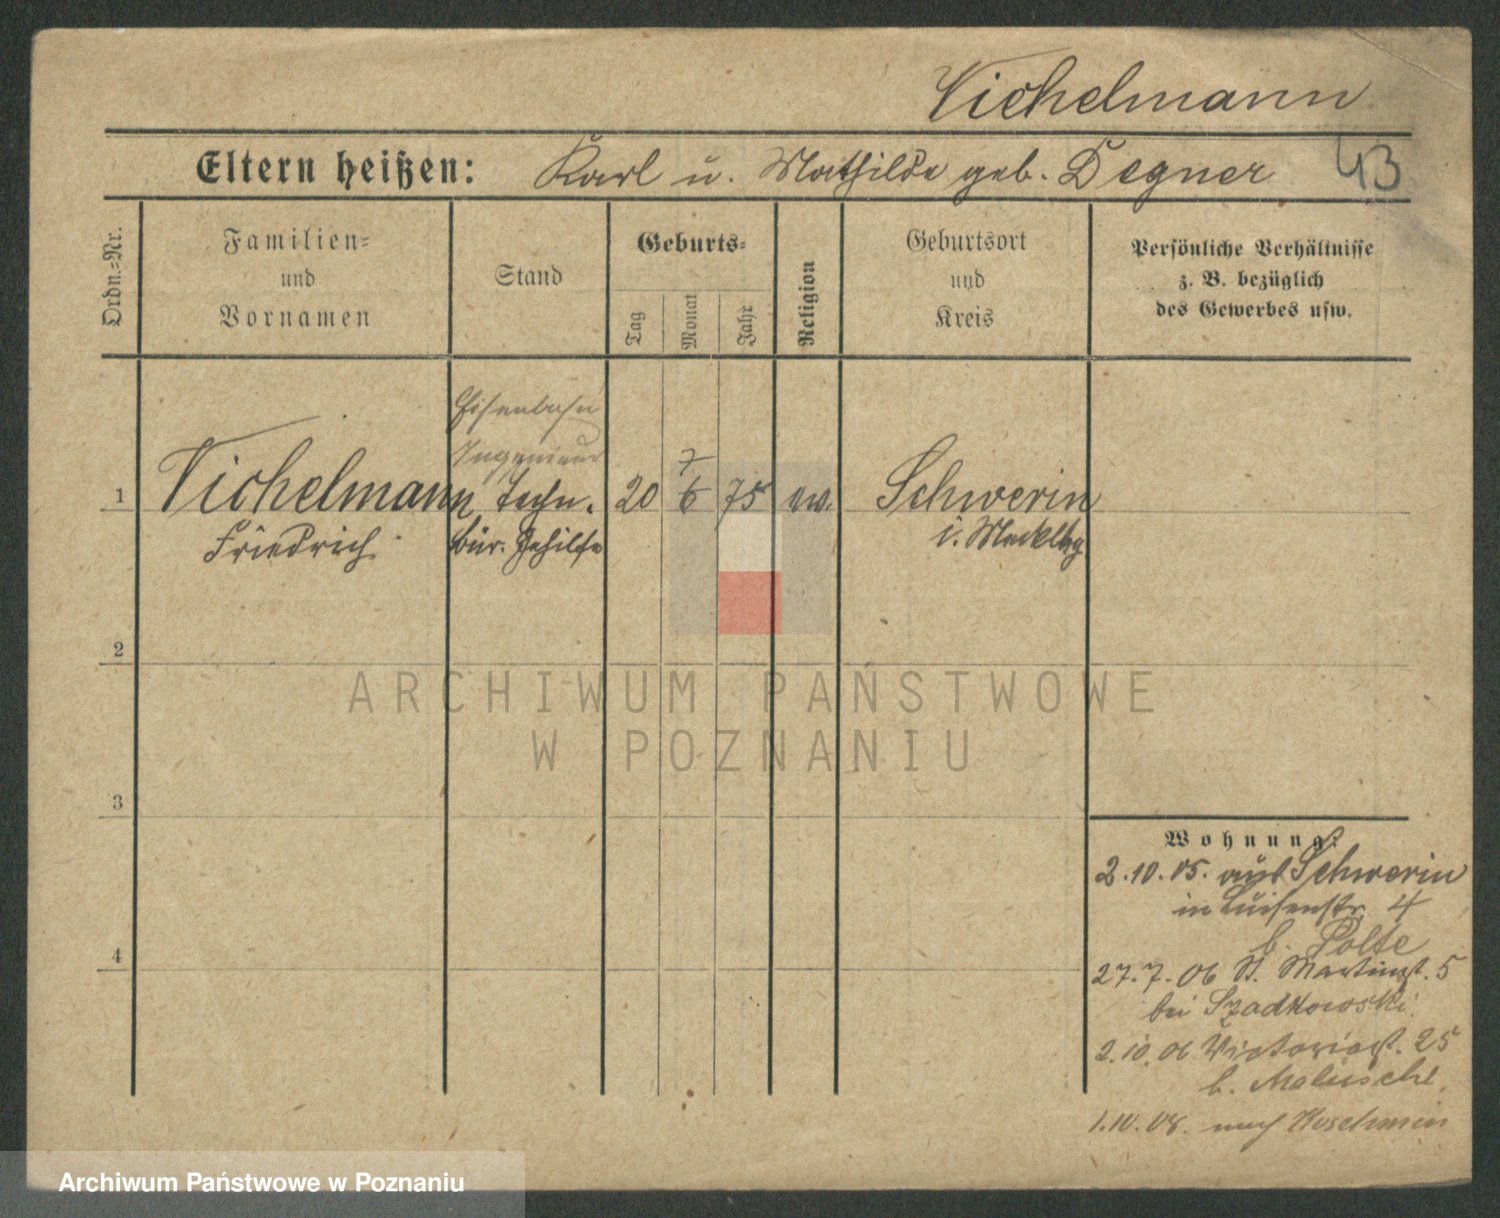 Vichelmann
Eltern heißen: Karl u. Mathilde geb. Degner 43
Ordn.-Nr.
Familien-
und
Vornamen
Stand
Geburts-
Tag
Monat
Jahr
Religion
Geburtsort
und
Kreis
Persönliche Verhältnisse
z. B. bezüglich
des Gewerbes usw.
Eisenbahn
Ingenieur
7
1 Vichelmann Techn. 20 6 75 ev. Schwerin
Friedrich Bür. Gehilfe i. Mecklbg
2
3
4
Wohnung:
2.10.05. aus Schwerin
in Luisenstr. 4
b. Polte
27.7.06 St. Martinst. 5
bei Szadkowski
2.10.06 Victoriast. 25
b. Malusche
1.10.08. nach
ARCHIWUM PAŃSTWOWE
W POZNANIU
Archiwum Państwowe w Poznaniu